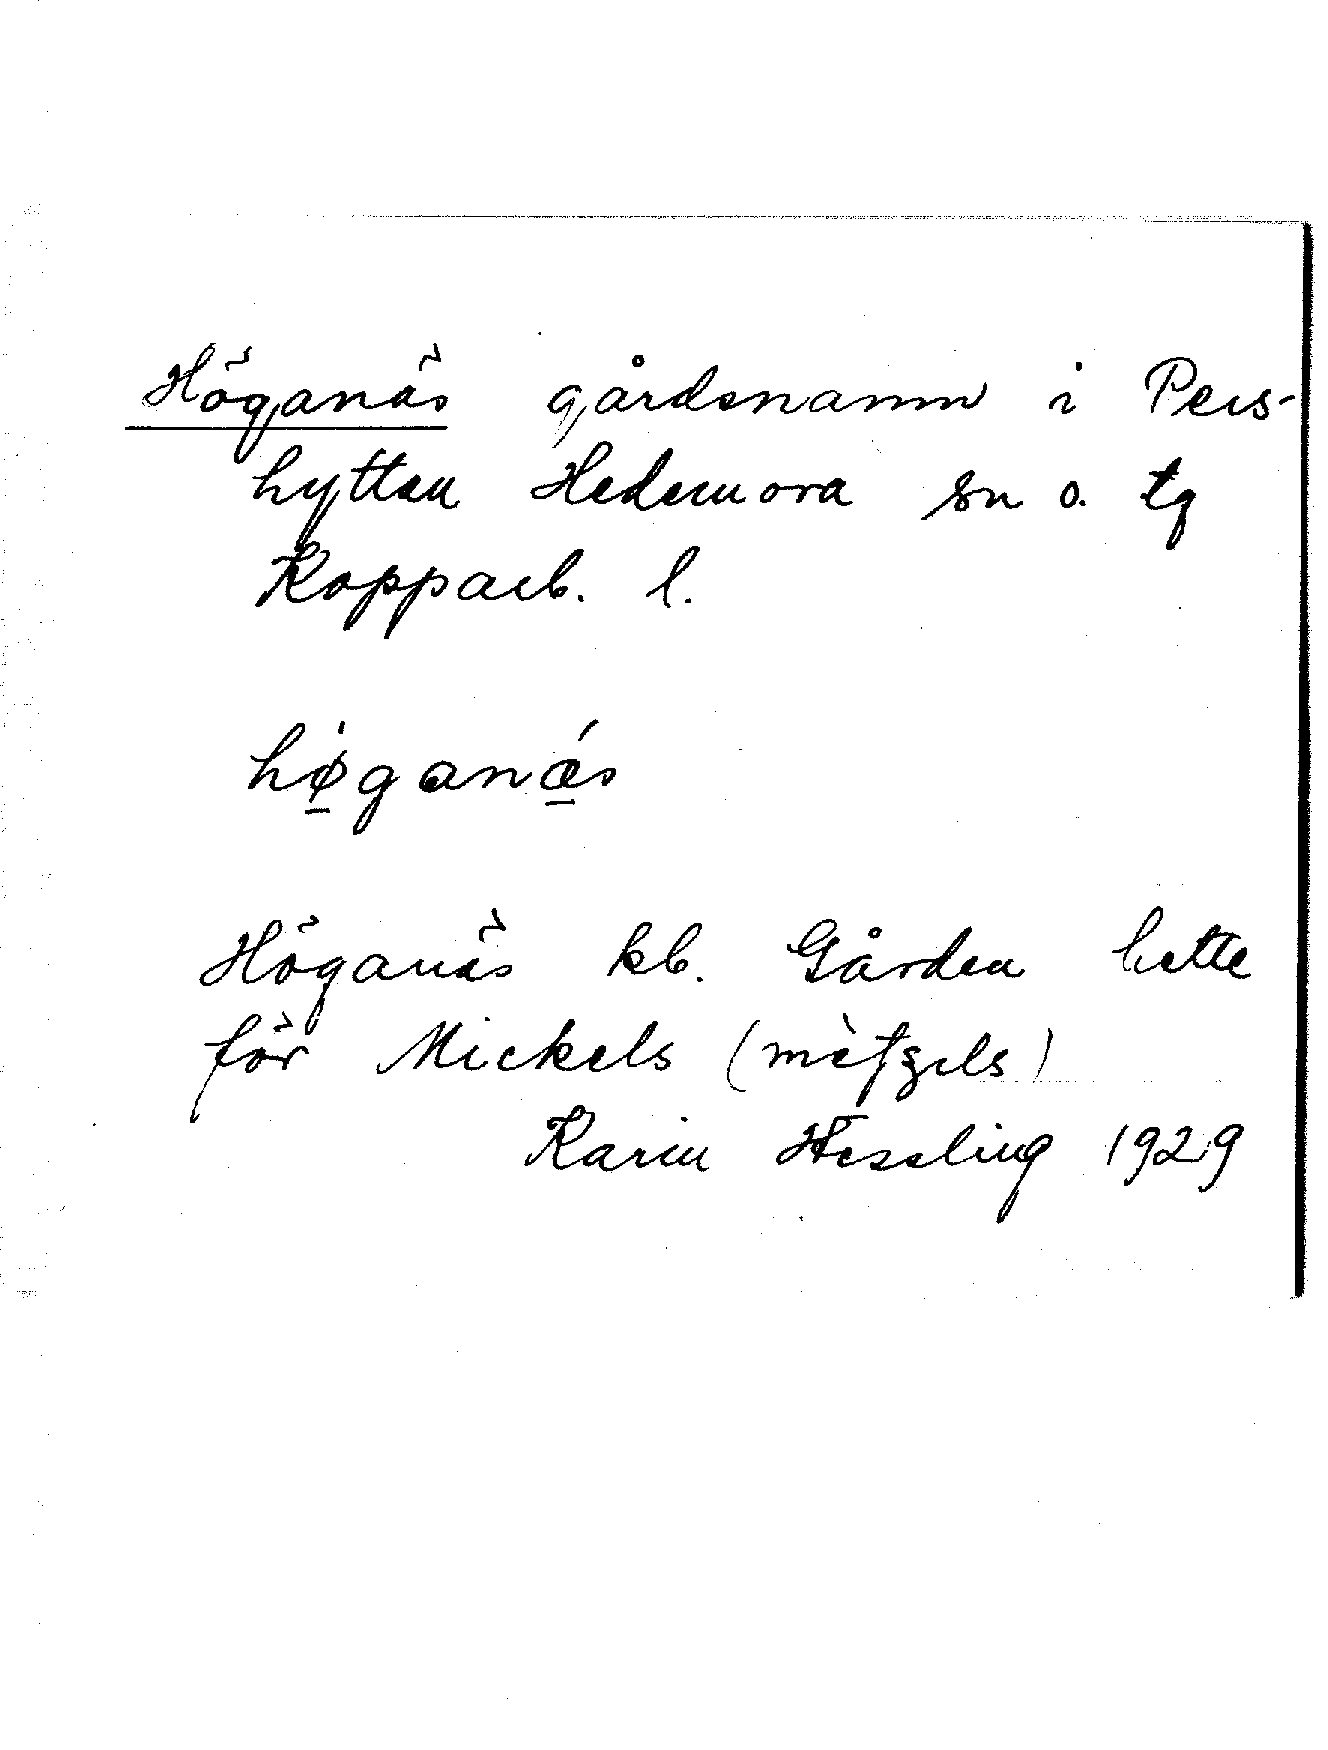 Höganäs gårdsnamn i Pers-
hyttan Hedemora sn o. tg
Kopparb. l.
hø̲̇ganǽ̲s
Höganäs kb. Gården hette
för Mickels (
Karin Hessling 1929